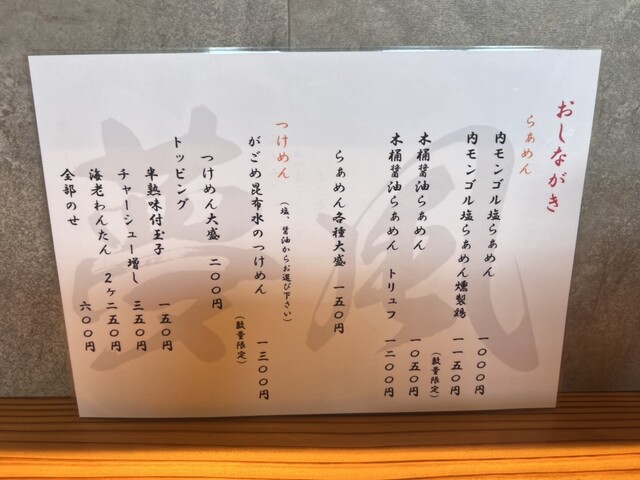 おしながき
らぁめん
内モンゴル塩らぁめん 一〇〇〇円
内モンゴル塩らぁめん燻製鶏 一一五〇円
(数量限定)
木桶醤油らぁめん 一〇五〇円
木桶醤油らぁめん トリュフ 一二〇〇円
らぁめん各種大盛 一五〇円
つけめん (塩、醤油からお選び下さい)
がごめ昆布水のつけめん 一三〇〇円
(数量限定)
つけめん大盛 二〇〇円
トッピング
半熟味付玉子 一五〇円
チャーシュー増し 三五〇円
海老わんたん 2ヶ 二五〇円
全部のせ 六〇〇円
夢風